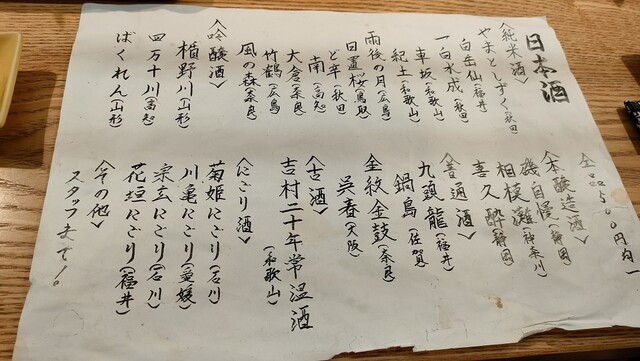 日本酒
全品500円均一
〈純米酒〉
やまとしずく(秋田)
白岳仙(福井)
一白水成(秋田)
車坂(和歌山)
紀土(和歌山)
雨後の月(広島)
日置桜(鳥取)
ど辛(秋田)
南(高知)
大倉(奈良)
竹鶴(広島)
風の森(奈良)
〈吟醸酒〉
楯野川(山形)
四万十川(高知)
ばくれん(山形)
〈本醸造酒〉
磯自慢(静岡)
相模灘(神奈川)
喜久酔(静岡)
〈普通酒〉
九頭龍(福井)
鍋島(佐賀)
金紋金鼓(奈良)
呉春(大阪)
〈古酒〉
吉村二十年常温酒
(和歌山)
〈にごり酒〉
菊姫にごり(石川)
川亀にごり(愛媛)
宗玄にごり(石川)
花垣にごり(福井)
〈その他〉
スタッフまで!。